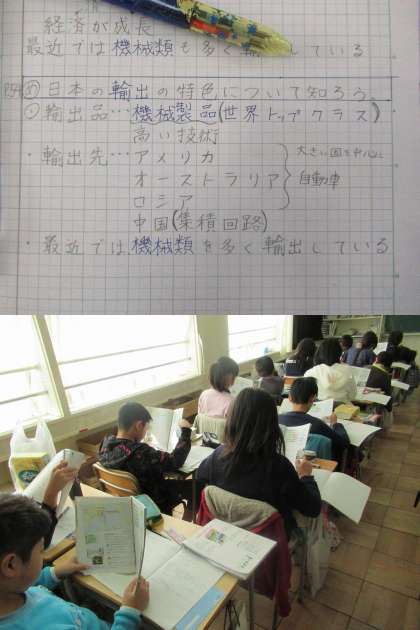 経済が成長
最近では機械類も多く輸出している
め 日本の輸出の特色について知ろう。
○輸出品…機械製品(世界トップクラス)
高い技術
・輸出先…アメリカ
オーストラリア
ロシア
大きい国を中心に
自動車
中国(集積回路)
・最近では機械類を多く輸出している